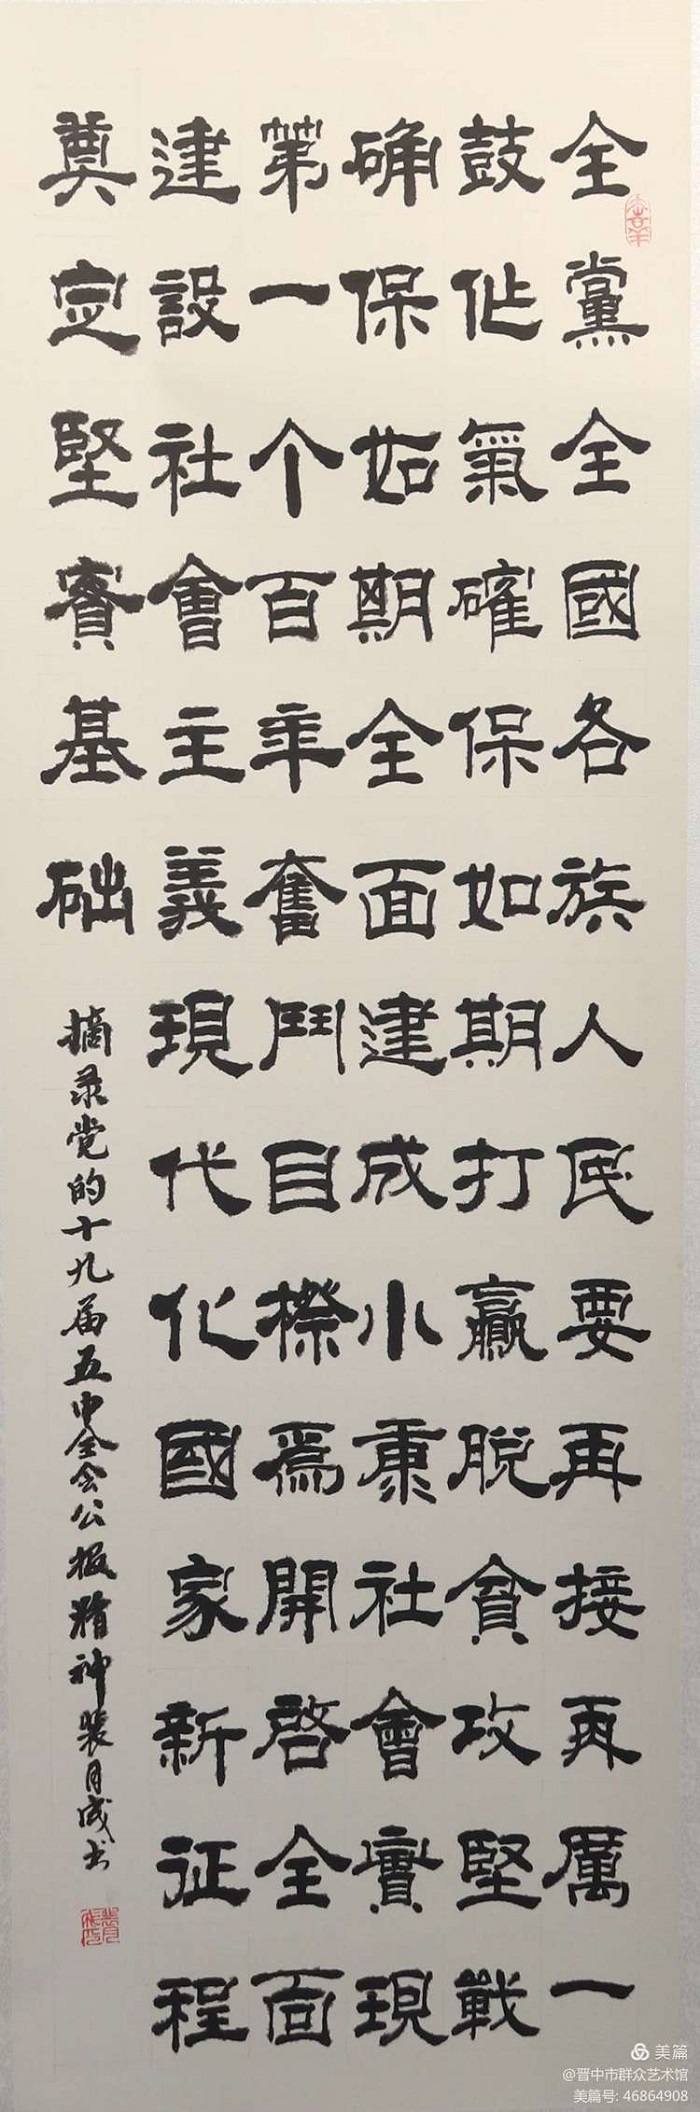 全黨全國各族人民要再接再厲一
鼓作氣確保如期打贏脫貧攻堅戰
确保如期全面建成小康社會實現
第一个百年奮鬥目標爲開啓全面
建設社會主義現代化國家新征程
奠定堅實基础
摘录党的十九届五中全会公报精神裴月成书
美篇
@晋中市群众艺术馆
美篇号: 46864908